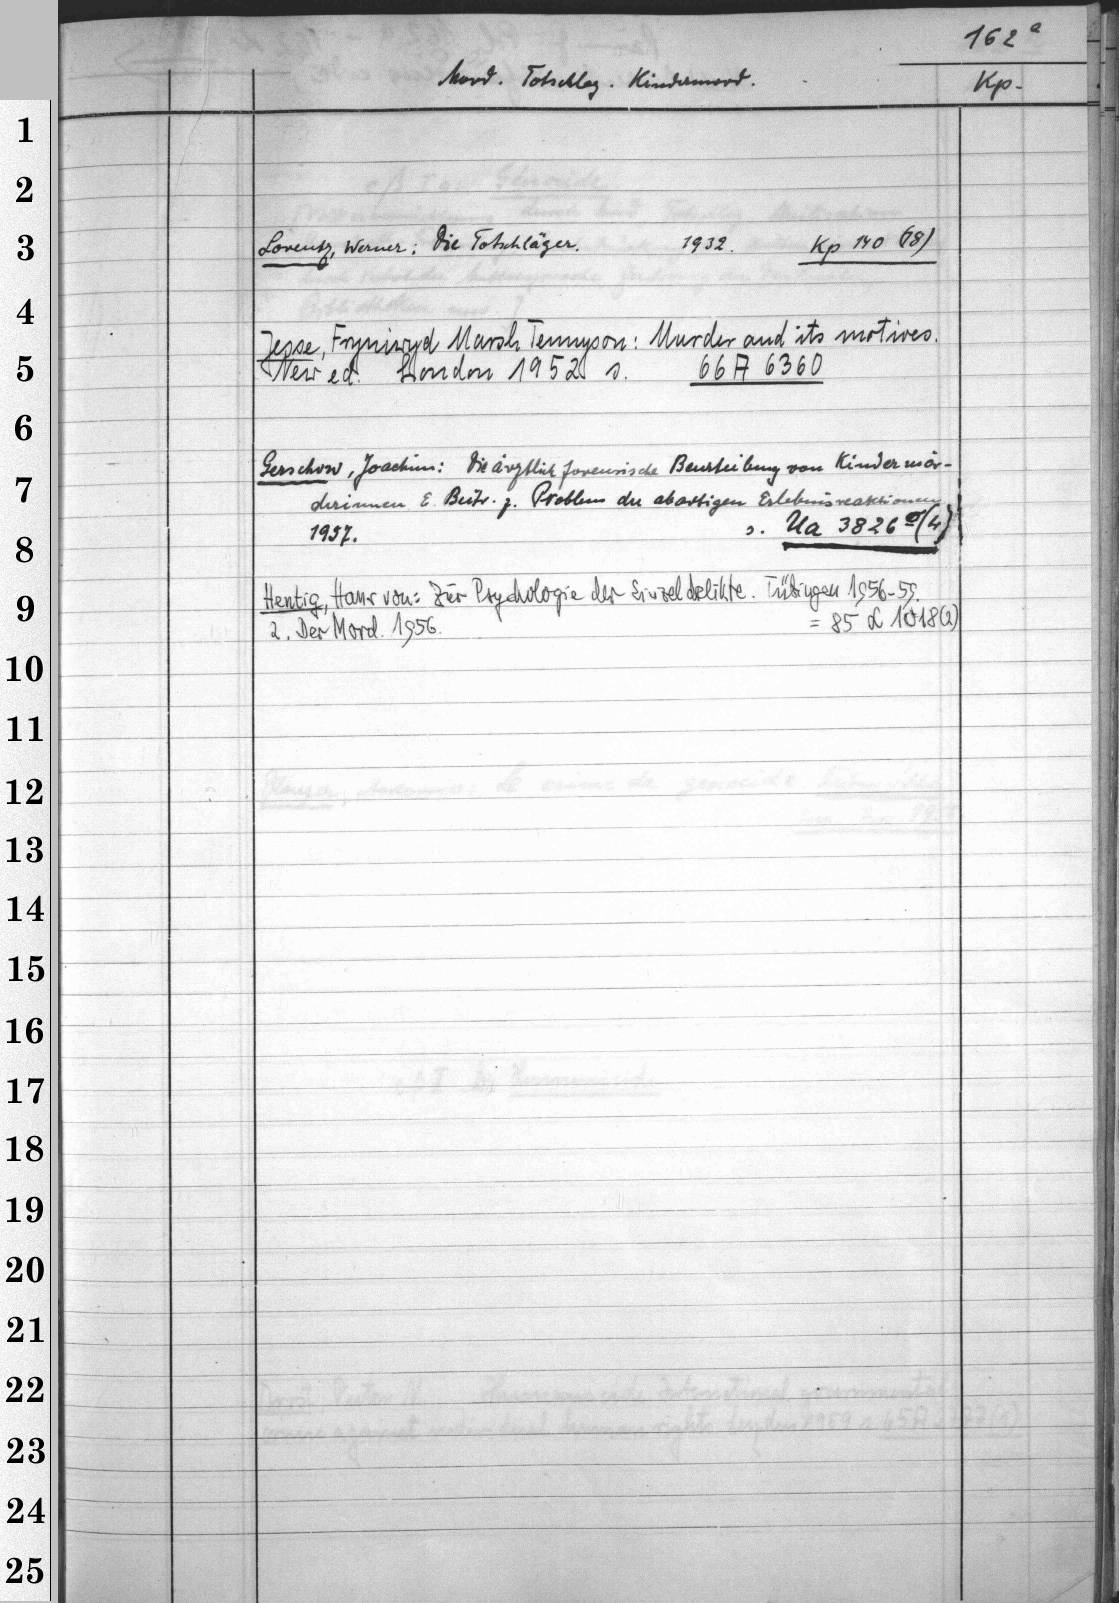 162a
Mord. Totschlag. Kindermord.
Kp.
1
2
3
Lorentz, Werner: Die Totschläger. 1932. Kp 140 (18)
4
Jesse, Fryniwyd Marsh Tennyson: Murder and its motives.
5
New ed. London 1952 s. 66 A 6360
6
Gerschow, Joachim: Die ärztlich forensische Beurteilung von Kindermör-
7
derinnen E. Beitr. z. Problem der abartigen Erlebnisreaktionen
1957. s. Ua 3826 (4)
8
Hentig, Hans von: Zur Psychologie der Einzeldelikte. Tübingen 1956-59.
9
2. Der Mord. 1956. = 85 α 1018(2)
10
11
12
13
14
15
16
17
18
19
20
21
22
23
24
25